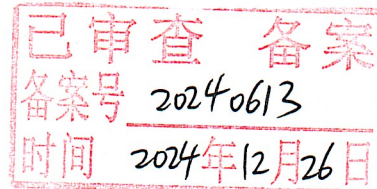 已审查 备案
备案号 20240613
时间 2024年12月26日